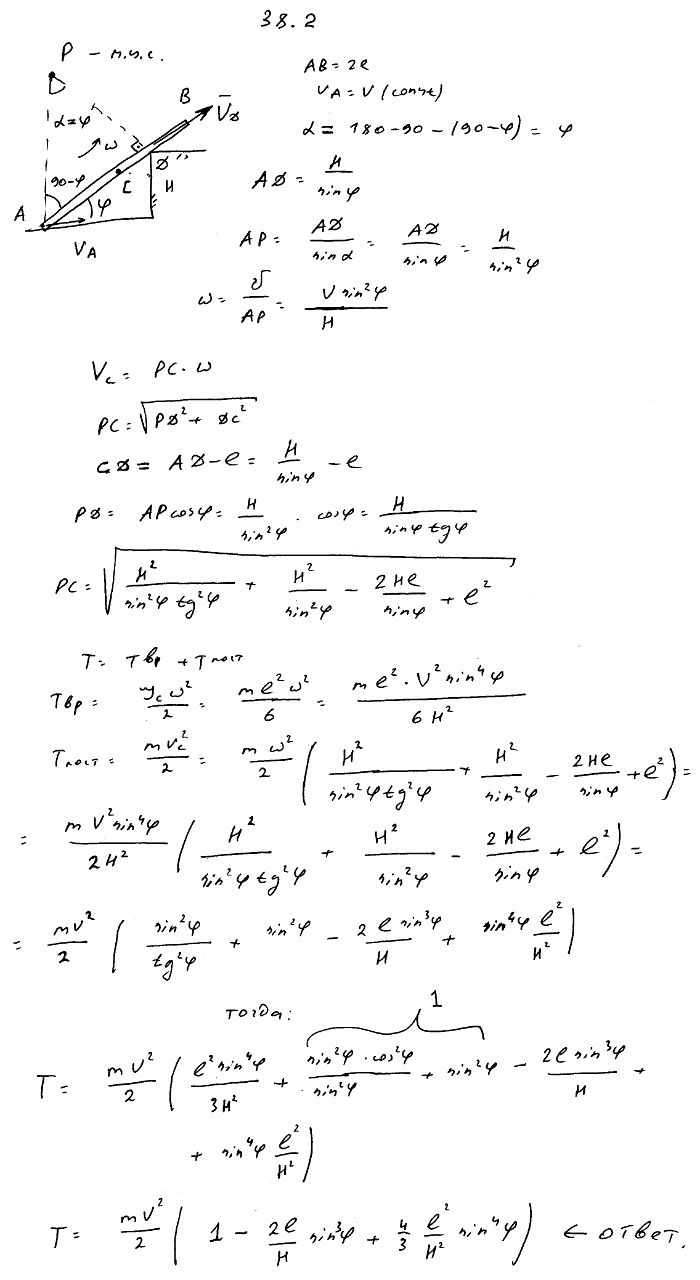 38.2
P – м.ц.с.
AB = 2l
V_A = V (const)
α = 180-90-(90-φ) = φ
B
V̄_D
α=φ
ω
90-φ
C
D
H
A
φ
V_A
AD = H / sinφ
AP = AD / sinα = AD / sinφ = H / sin²φ
ω = V / AP = V sin²φ / H
V_c = PC · ω
PC = √(PD² + DC²)
CD = AD - l = H / sinφ - l
PD = AP cosφ = H / sin²φ · cosφ = H / (sinφ tgφ)
PC = √(H² / (sin²φ tg²φ) + H² / sin²φ - 2Hl / sinφ + l²)
T = Tвр + Tпост
Tвр = J_c ω² / 2 = m l² ω² / 6 = m l² · V² sin⁴φ / 6H²
Tпост = m V_c² / 2 = m ω² / 2 (H² / (sin²φ tg²φ) + H² / sin²φ - 2Hl / sinφ + l²) =
= m V² sin⁴φ / 2H² (H² / (sin²φ tg²φ) + H² / sin²φ - 2Hl / sinφ + l²) =
= mV² / 2 (sin²φ / tg²φ + sin²φ - 2l sin³φ / H + sin⁴φ l² / H²)
тогда:
1
T = mV² / 2 (l² sin⁴φ / 3H² + sin²φ · cos²φ / sin²φ + sin²φ - 2l sin³φ / H +
+ sin⁴φ l² / H²)
T = mV² / 2 (1 - 2l / H sin³φ + 4/3 l² / H² sin⁴φ) ← ответ.